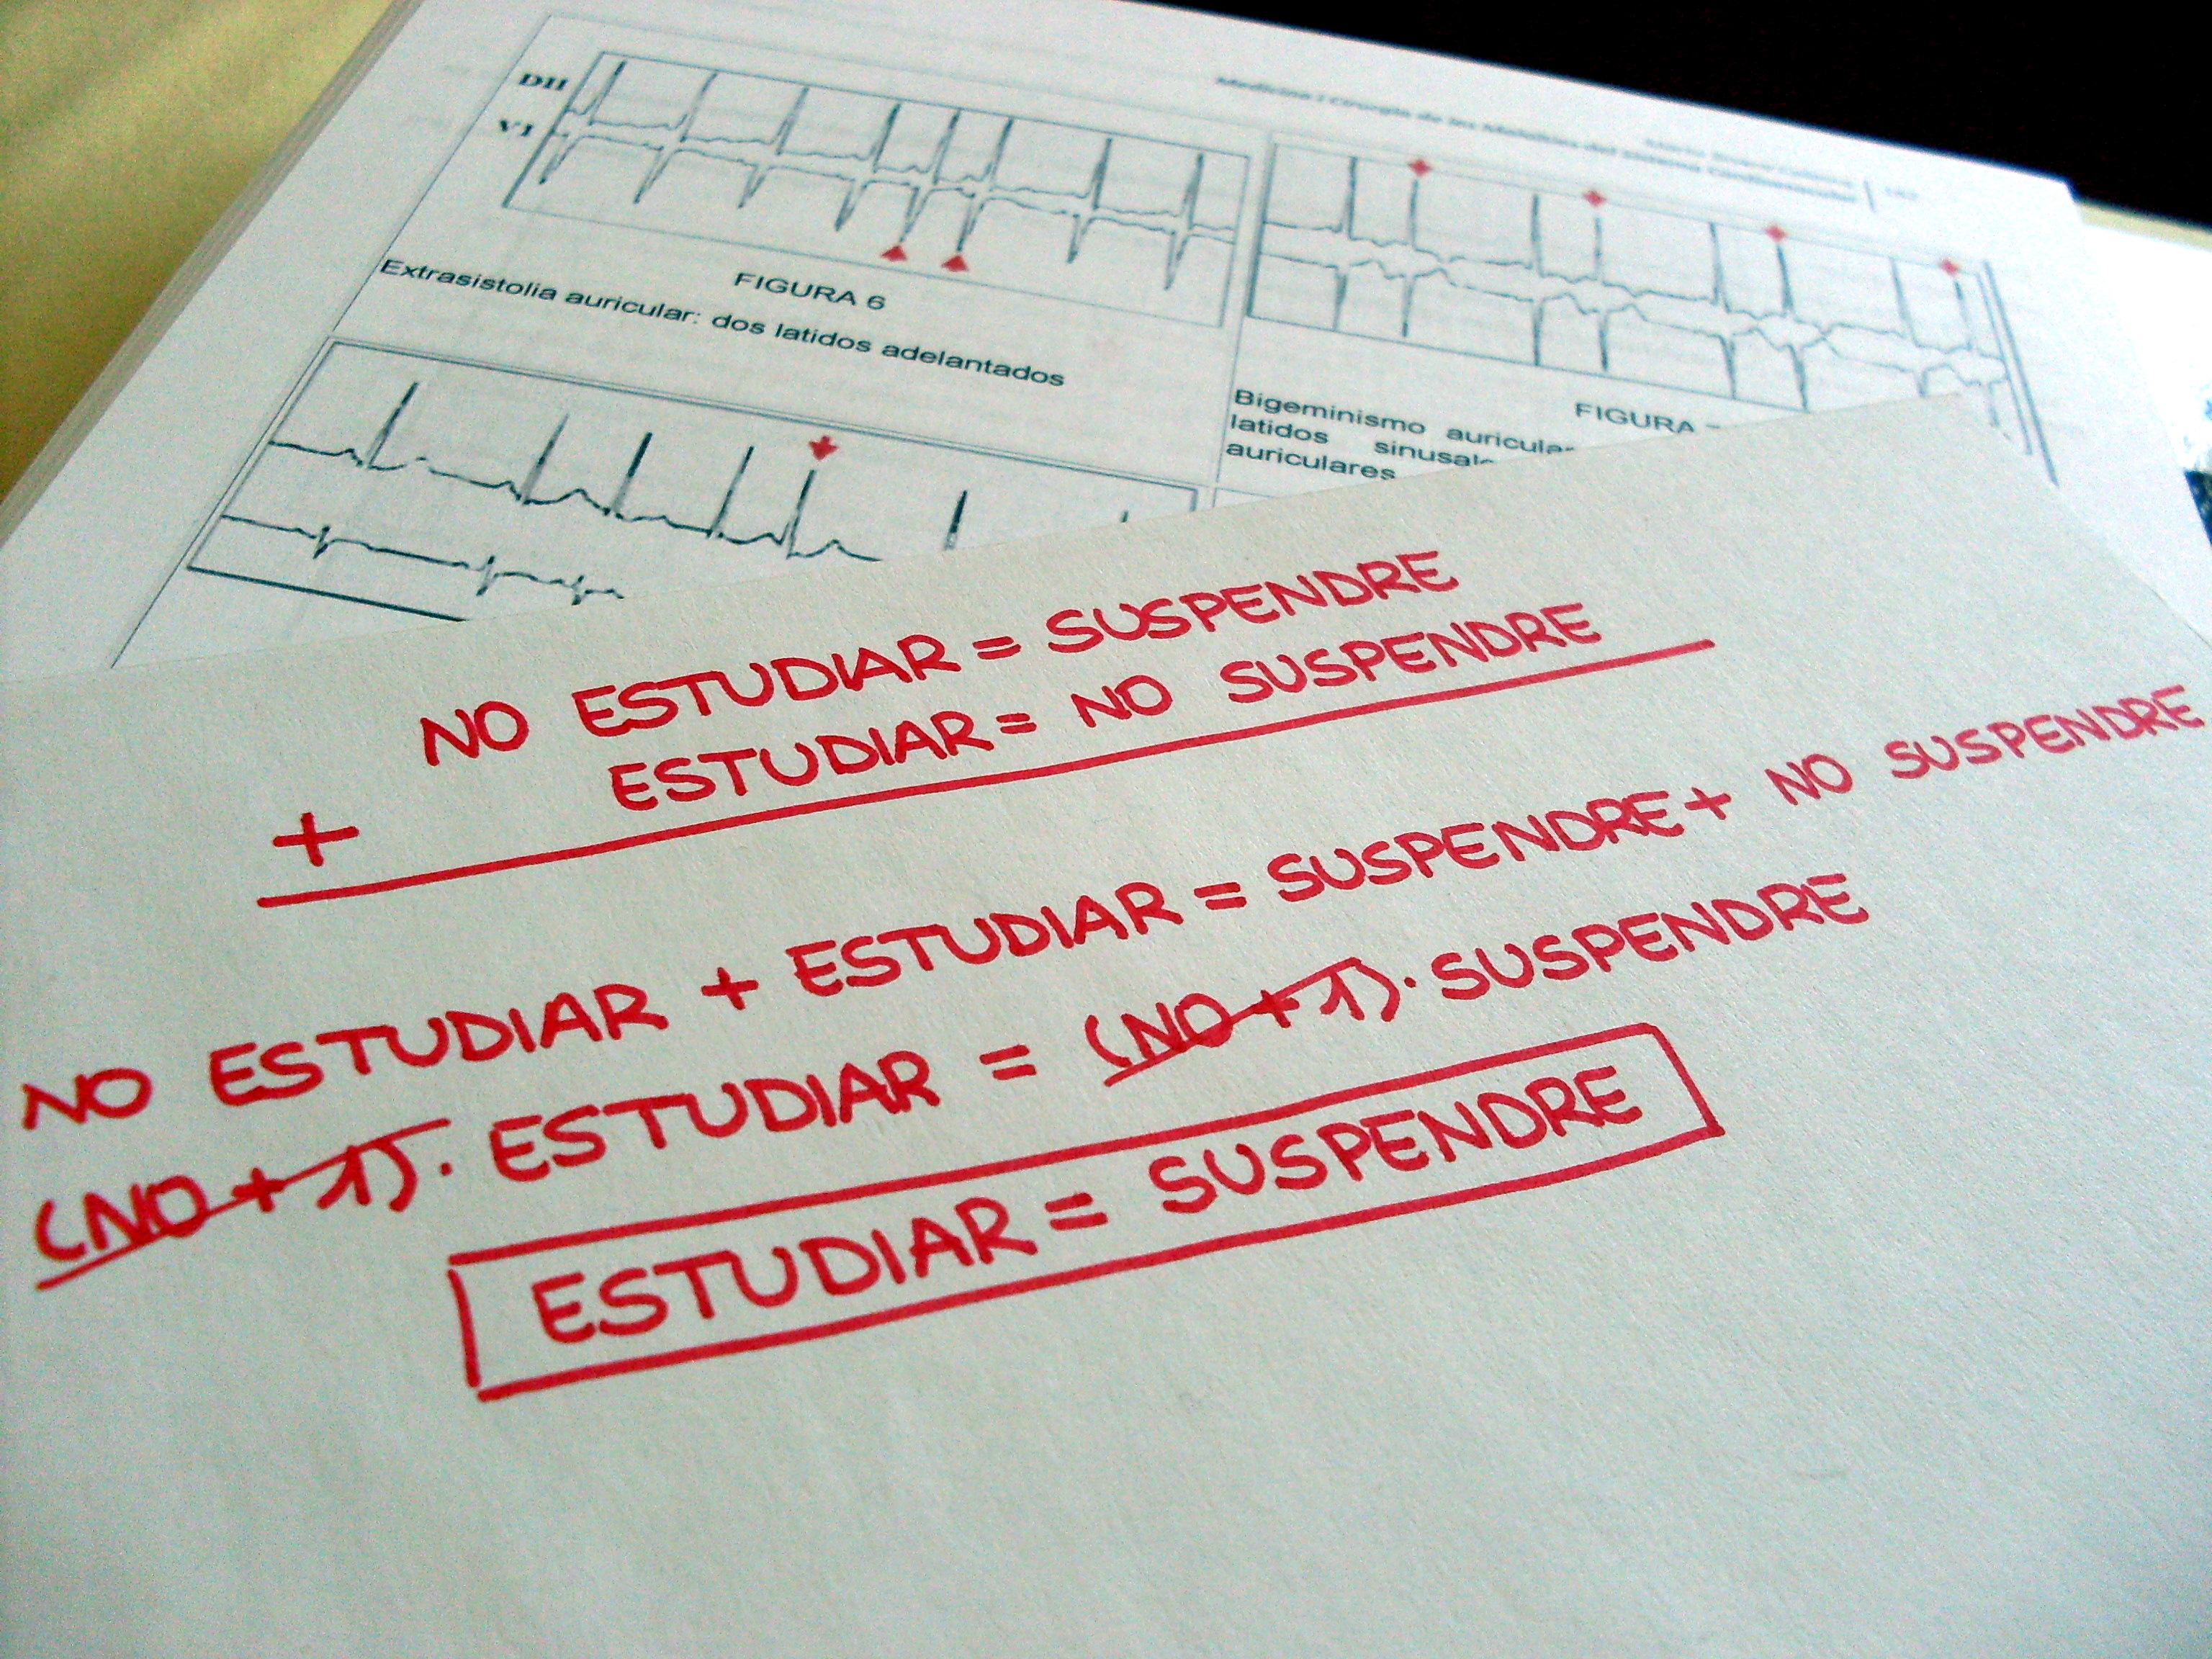 Medicina i Cirurgia de les Malalties del sistema Cardiovascular
DII
V1
FIGURA 6
Extrasistolia auricular: dos latidos adelantados
FIGURA
Bigeminismo auricular
latidos sinusale
auriculares
NO ESTUDIAR = SUSPENDRE
ESTUDIAR = NO SUSPENDRE
+
NO ESTUDIAR + ESTUDIAR = SUSPENDRE + NO SUSPENDRE
(NO + 1) · ESTUDIAR = (NO + 1) · SUSPENDRE
ESTUDIAR = SUSPENDRE